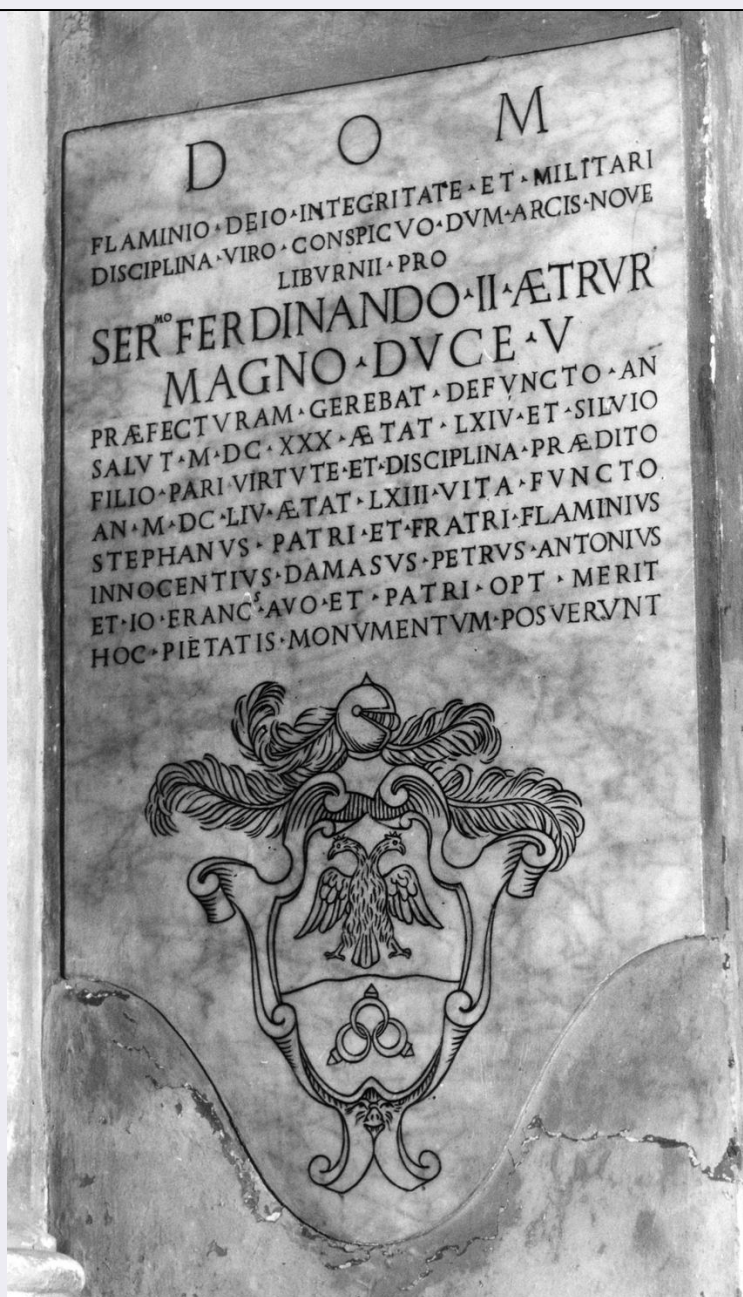 D O M
FLAMINIO·DEIO·INTEGRITATE·ET·MILITARI
DISCIPLINA·VIRO·CONSPICVO·DVM·ARCIS·NOVE
LIBVRNII·PRO
SER.MO FERDINANDO·II·ÆTRVR
MAGNO·DVCE·V
PRÆFECTVRAM·GEREBAT·DEFVNCTO·AN
SALVT·M·DC·XXX·ÆTAT·LXIV·ET·SILVIO
FILIO·PARI VIRTVTE·ET·DISCIPLINA·PRÆDITO
AN·M·DC·LIV·ÆTAT·LXIII·VITA·FVNCTO
STEPHANVS·PATRI·ET·FRATRI·FLAMINIVS
INNOCENTIVS·DAMASVS·PETRVS·ANTONIVS
ET·IO·FRANCS·AVO·ET·PATRI·OPT·MERIT
HOC·PIETATIS·MONVMENTVM·POSVERVNT